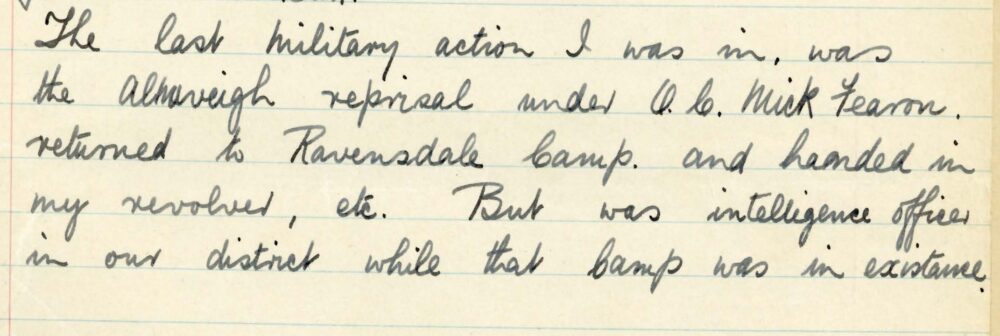 The last military action I was in, was
the Altnaveigh reprisal under O.C. Mick Fearon.
returned to Ravensdale Camp. and handed in
my revolver, etc. But was intelligence officer
in our district while that Camp was in existance.